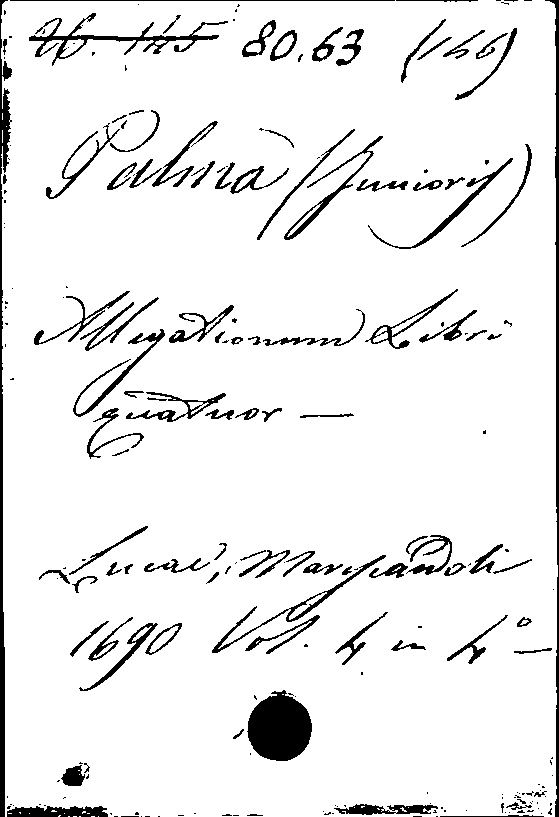 H. 145 80.63 (146)
Palma (Junioris)
Allegationum Libri
quatuor —
Lucae, Marescandoli
1690 Vol. 4 in 4°